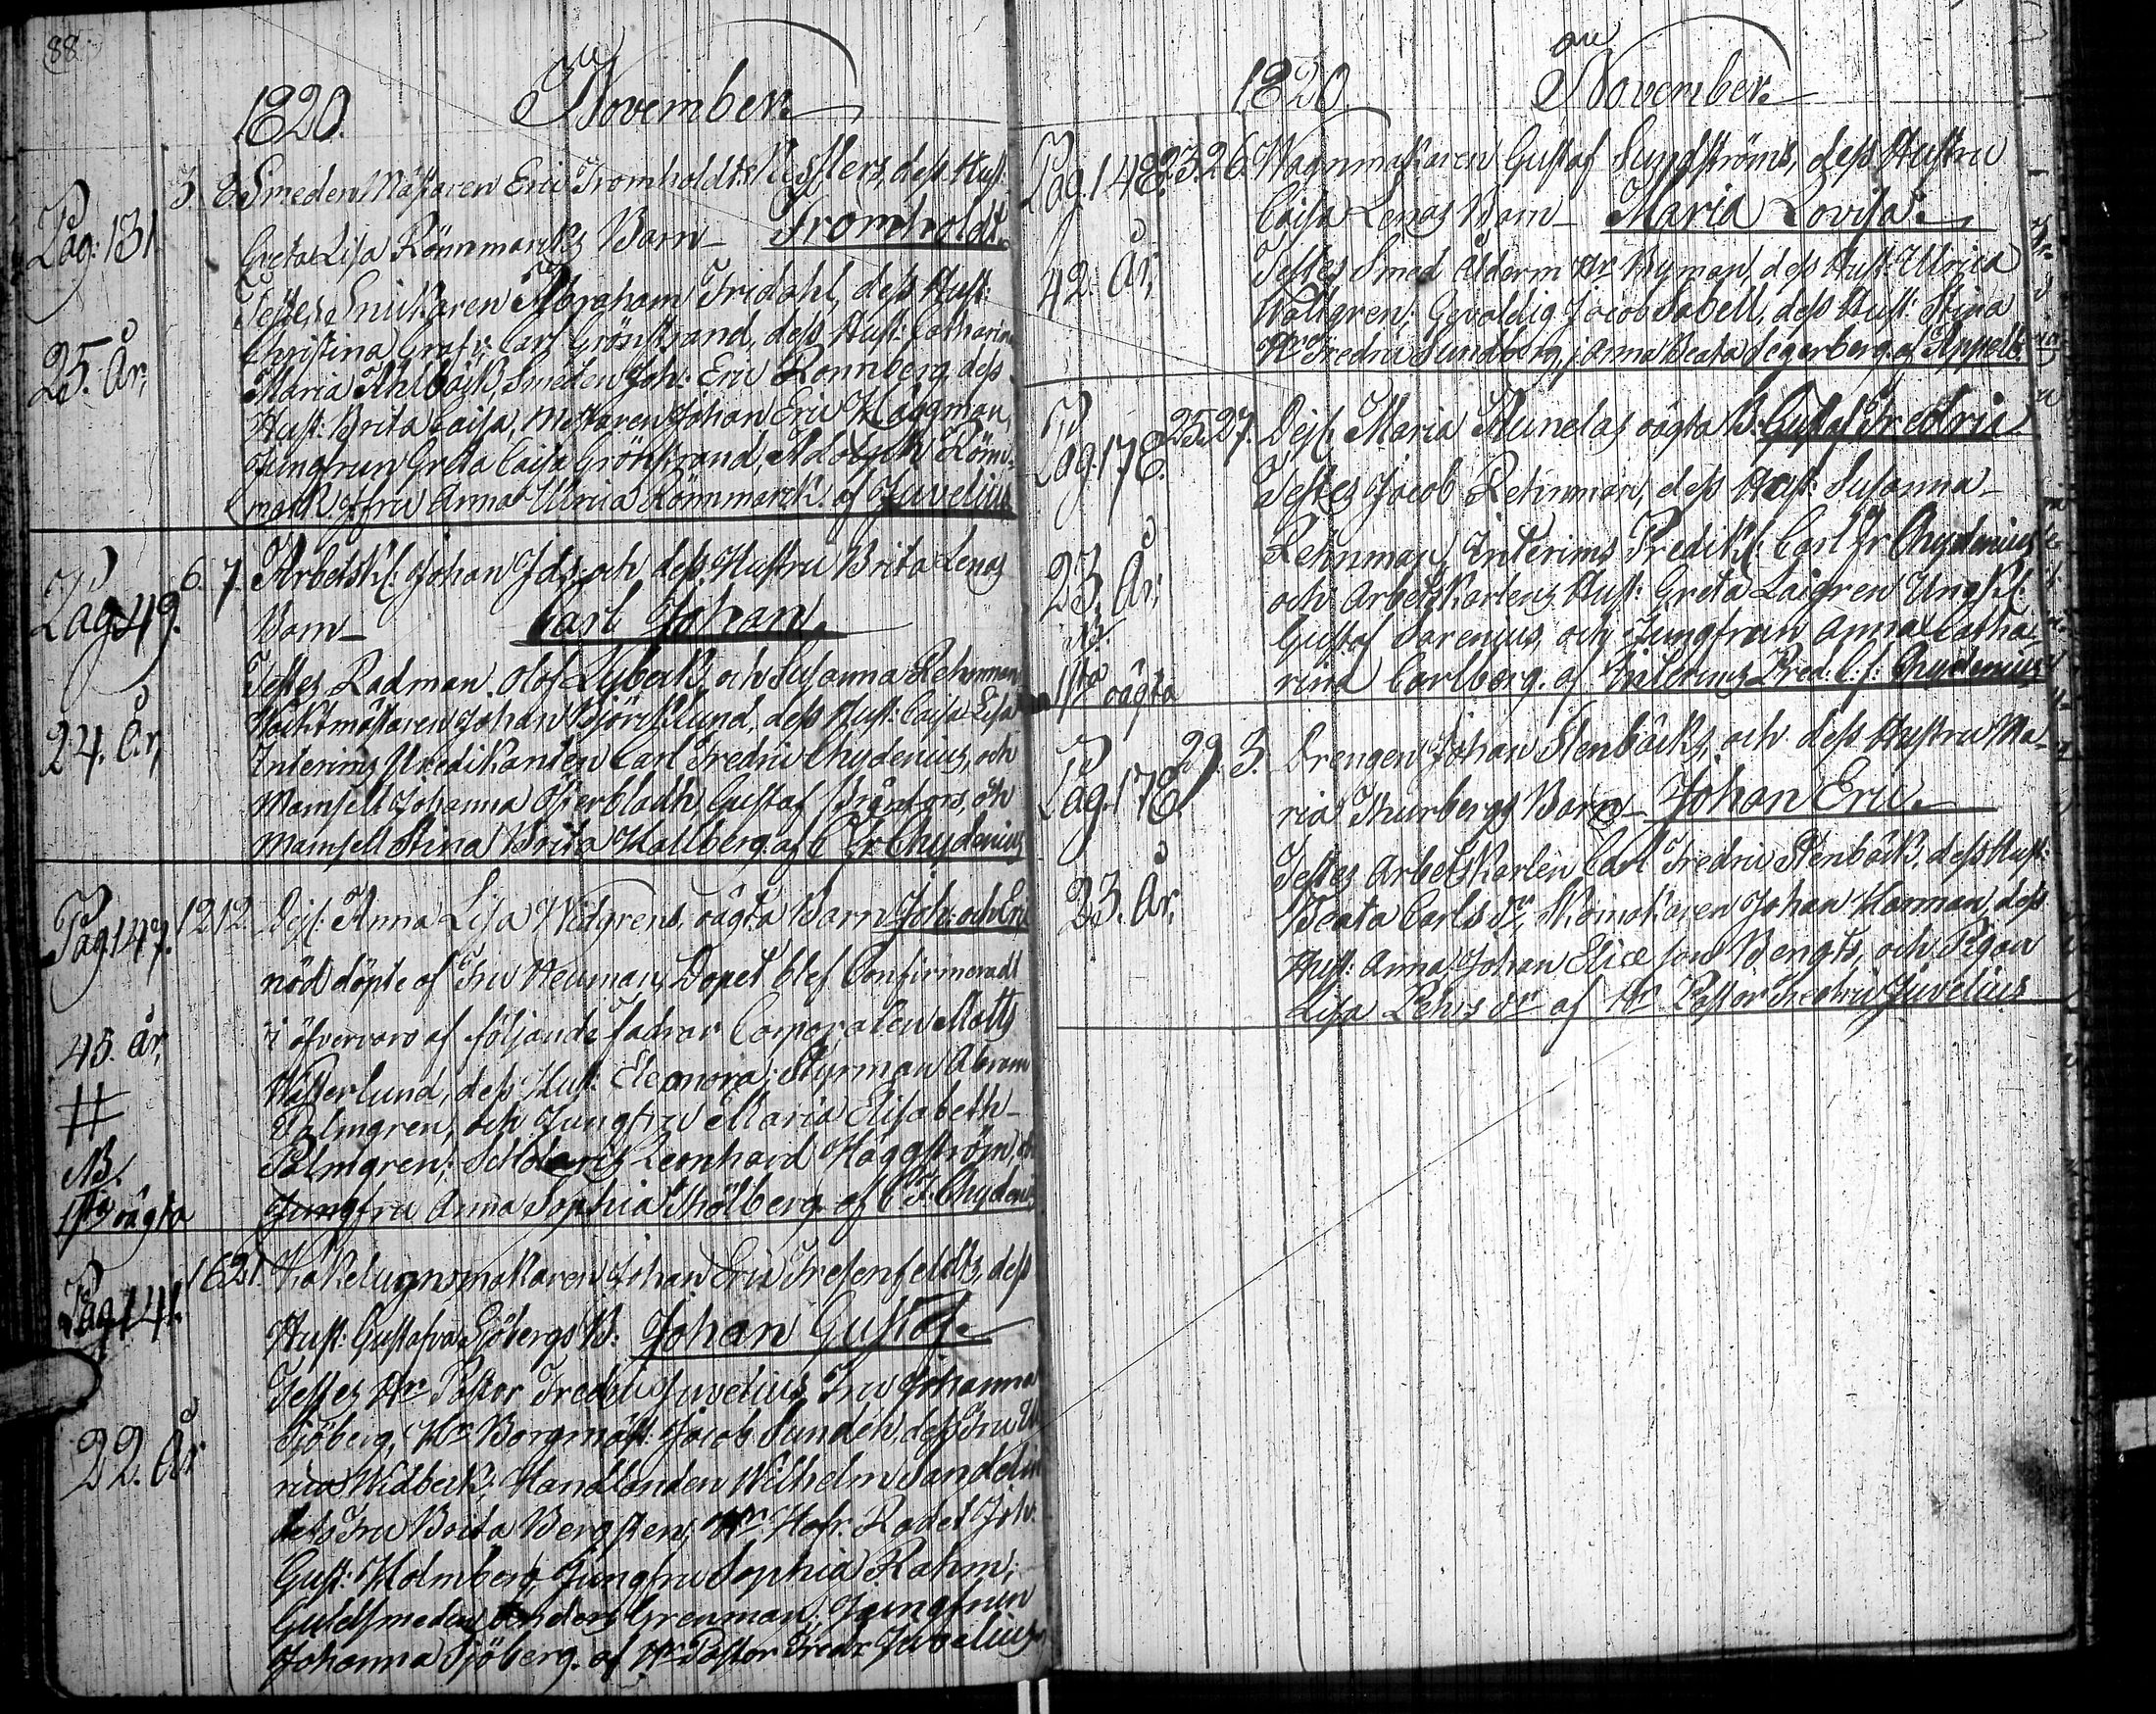 88.
1820. November.
Pag: 131
3. 8. Smeden Mästaren Eric Fromholdts Kesflers, dess Hust:
Greta Lisa Rönnmarcks Barn – Fromholdt.
25. År,
Testes Snickaren Abraham Fridahl, dess Hust:
Christina Graf; Carl Grönstrand, dess Hust: Catharina
Maria Ahlbäck, Smeden Joh: Eric Rönnberg, dess
Hust: Brita Caisa, Johan Eric Häggman,
Jungfrun Greta Caisa Grönstrand, Adolph Rönn-
mark. Jfru Anna Ulrica Rönnmarck. af Juvelius
Pag 49.
6. 7. Arbetsk: Johan Ids och dess Hustru Brita Lenas
Barn – Carl Johan.
24. År,
Testes Radman Olof Lybeck, och Susanna Rehnman,
Wacktmästaren Johan Björcklund, dess Hust: Caisa Lisa
Interims Predikanten Carl Fredric Chydenius, och
Mamsell Johanna Österbladh, Gustaf och
Mamsell Stina Brita Hallberg. af C Fr Chydenius
Pag. 147.
12 12. Anna Lisa Widgrens, oägta Barn Joh: och Eric
nöd döpte af Fru Neuman, Dopet blef Confirmeradt
i öfvervaro af följande fadrar Corporalen Matts
45. år,
Westerlund, dess Hust: Eleonora; Styrman Abram
#
Palmgren, och Jungfru Maria Elisabeth
NB.
Palmgren; Scholaris Leonhard Häggström, och
1sta oägta
Jungfru Anna Sophia Thölberg. af C F. Chydenius
Pag 141.
16 21. Kakelugnsmakaren Johan Eric Fresenfeldts, dess
Hust: Gustafva Sjöbergs B: Johan Gustaf.
Testes Hr Pastor Fredric Juvelius, Fru Johanna
22. År
Sjöberg, Hr Borgmäst: Jacob Sundén, dess Fru Ul
rica Widbeck, Handlanden Wilhelm Sandelin
dess Fru Brita Bergsten; Hr Hofr. Rådet Joh:
Gust: Holmberg, Jungfru Sophia Rahm;
Guldsmeden Anders Grenman; Jungfrun
Johanna Sjöberg. af Hr Pastor Fredr Juvelius
1820. November.
Pag. 148. 23. 26. Wagnmakaren Gustaf Sundströms, dess Hustru
Caisa Lenas Barn – Maria Lovisa.
42. År,
Testes Smed Ålderm Hr Nyman, dess Hust: Ulrica
Wallgren; Gevaldig Jacob Sabell, dess Hust: Stina
Hr Fredric Sundberg, Anna Beata Segerberg. af Appelb.
Pag. 178. 25. 27. Maria Thunelas oägta B: Gustaf Fredric
Testes Jacob Rehnman, dess Hust: Susanna
23. År,
Rehnman, Interims Predik: Carl Fr Chydenius
och Arbetskarlens Hust: Greta Laigren Ungk:
NB.
Gustaf Sarenius, och Jungfrun Anna Catha-
1sta oägta
rina Carlborg. af Interims Pred: C. f: Chydenius
Pag. 178. 29. 3. Drengen Johan Stenbäcks, och dess Hustru Ma-
ria Thurbergs Barn – Johan Eric.
23. År,
Testes Arbetskarlen Carl Fredric Stenbäck, dess Hust:
Beata Carls dr, Skomakaren Johan Norman, dess
Hust: Anna; Johan Elice son Bengts, och Pigan
Lisa Pehrs dr af Hr Pastor Fredric Juvelius